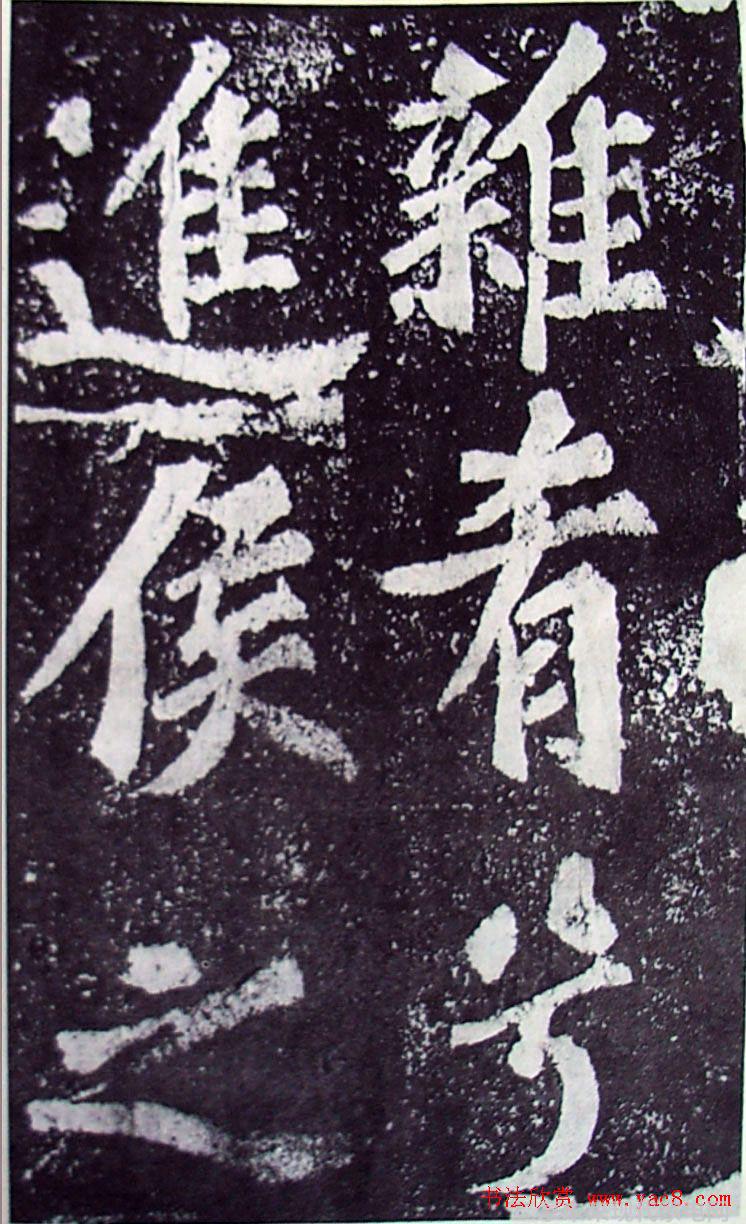 雜肴兮
進侯之
书法欣赏 www.yac8.com